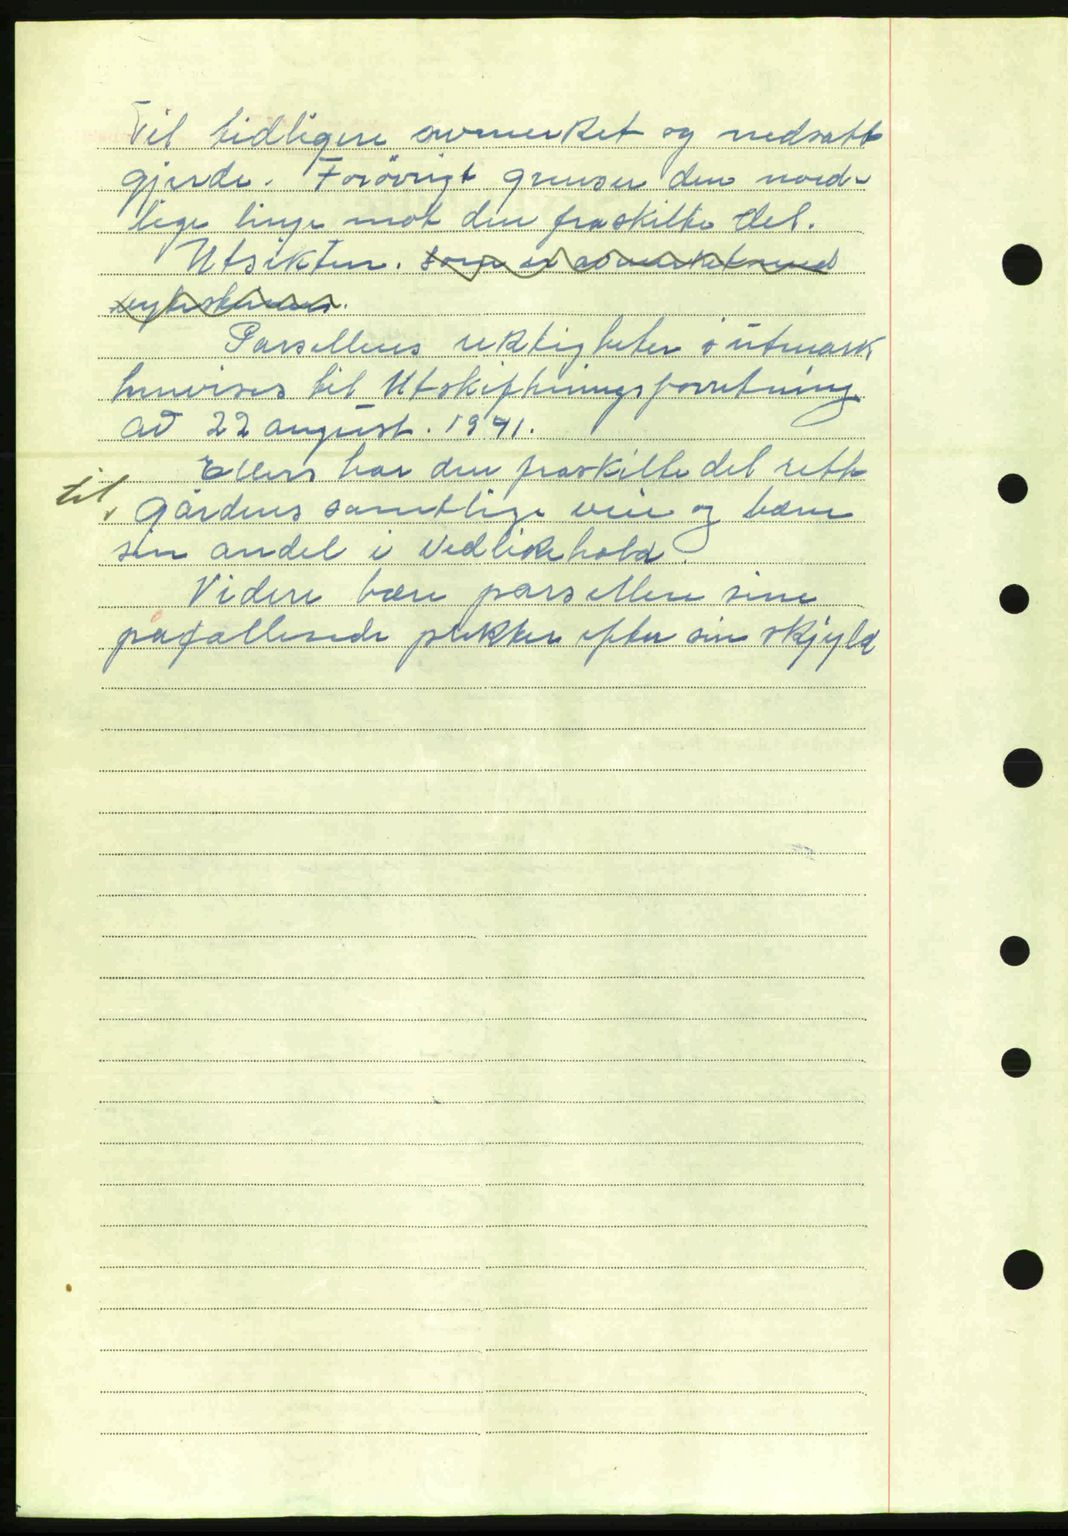 Til tidligere avmerket og nedsatt
gjerde. Forövrigt grenser den nord-
lige linje mot den fraskilte del.
Utsikten. som er avmerket med
Parsellens rektigheter i utmark
henvises til Utskiftningsforretning
av 22 august. 1941.
Ellers har den fraskilte del rett
til gårdens samtlige veie og bære
sin andel i vedlikehold.
Videre bære parsellen sine
påfallende plikter efter sin skjyld